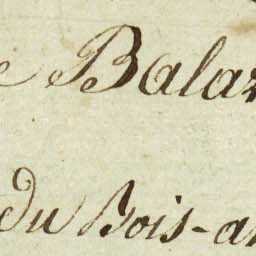 e Balar
du Bois-an